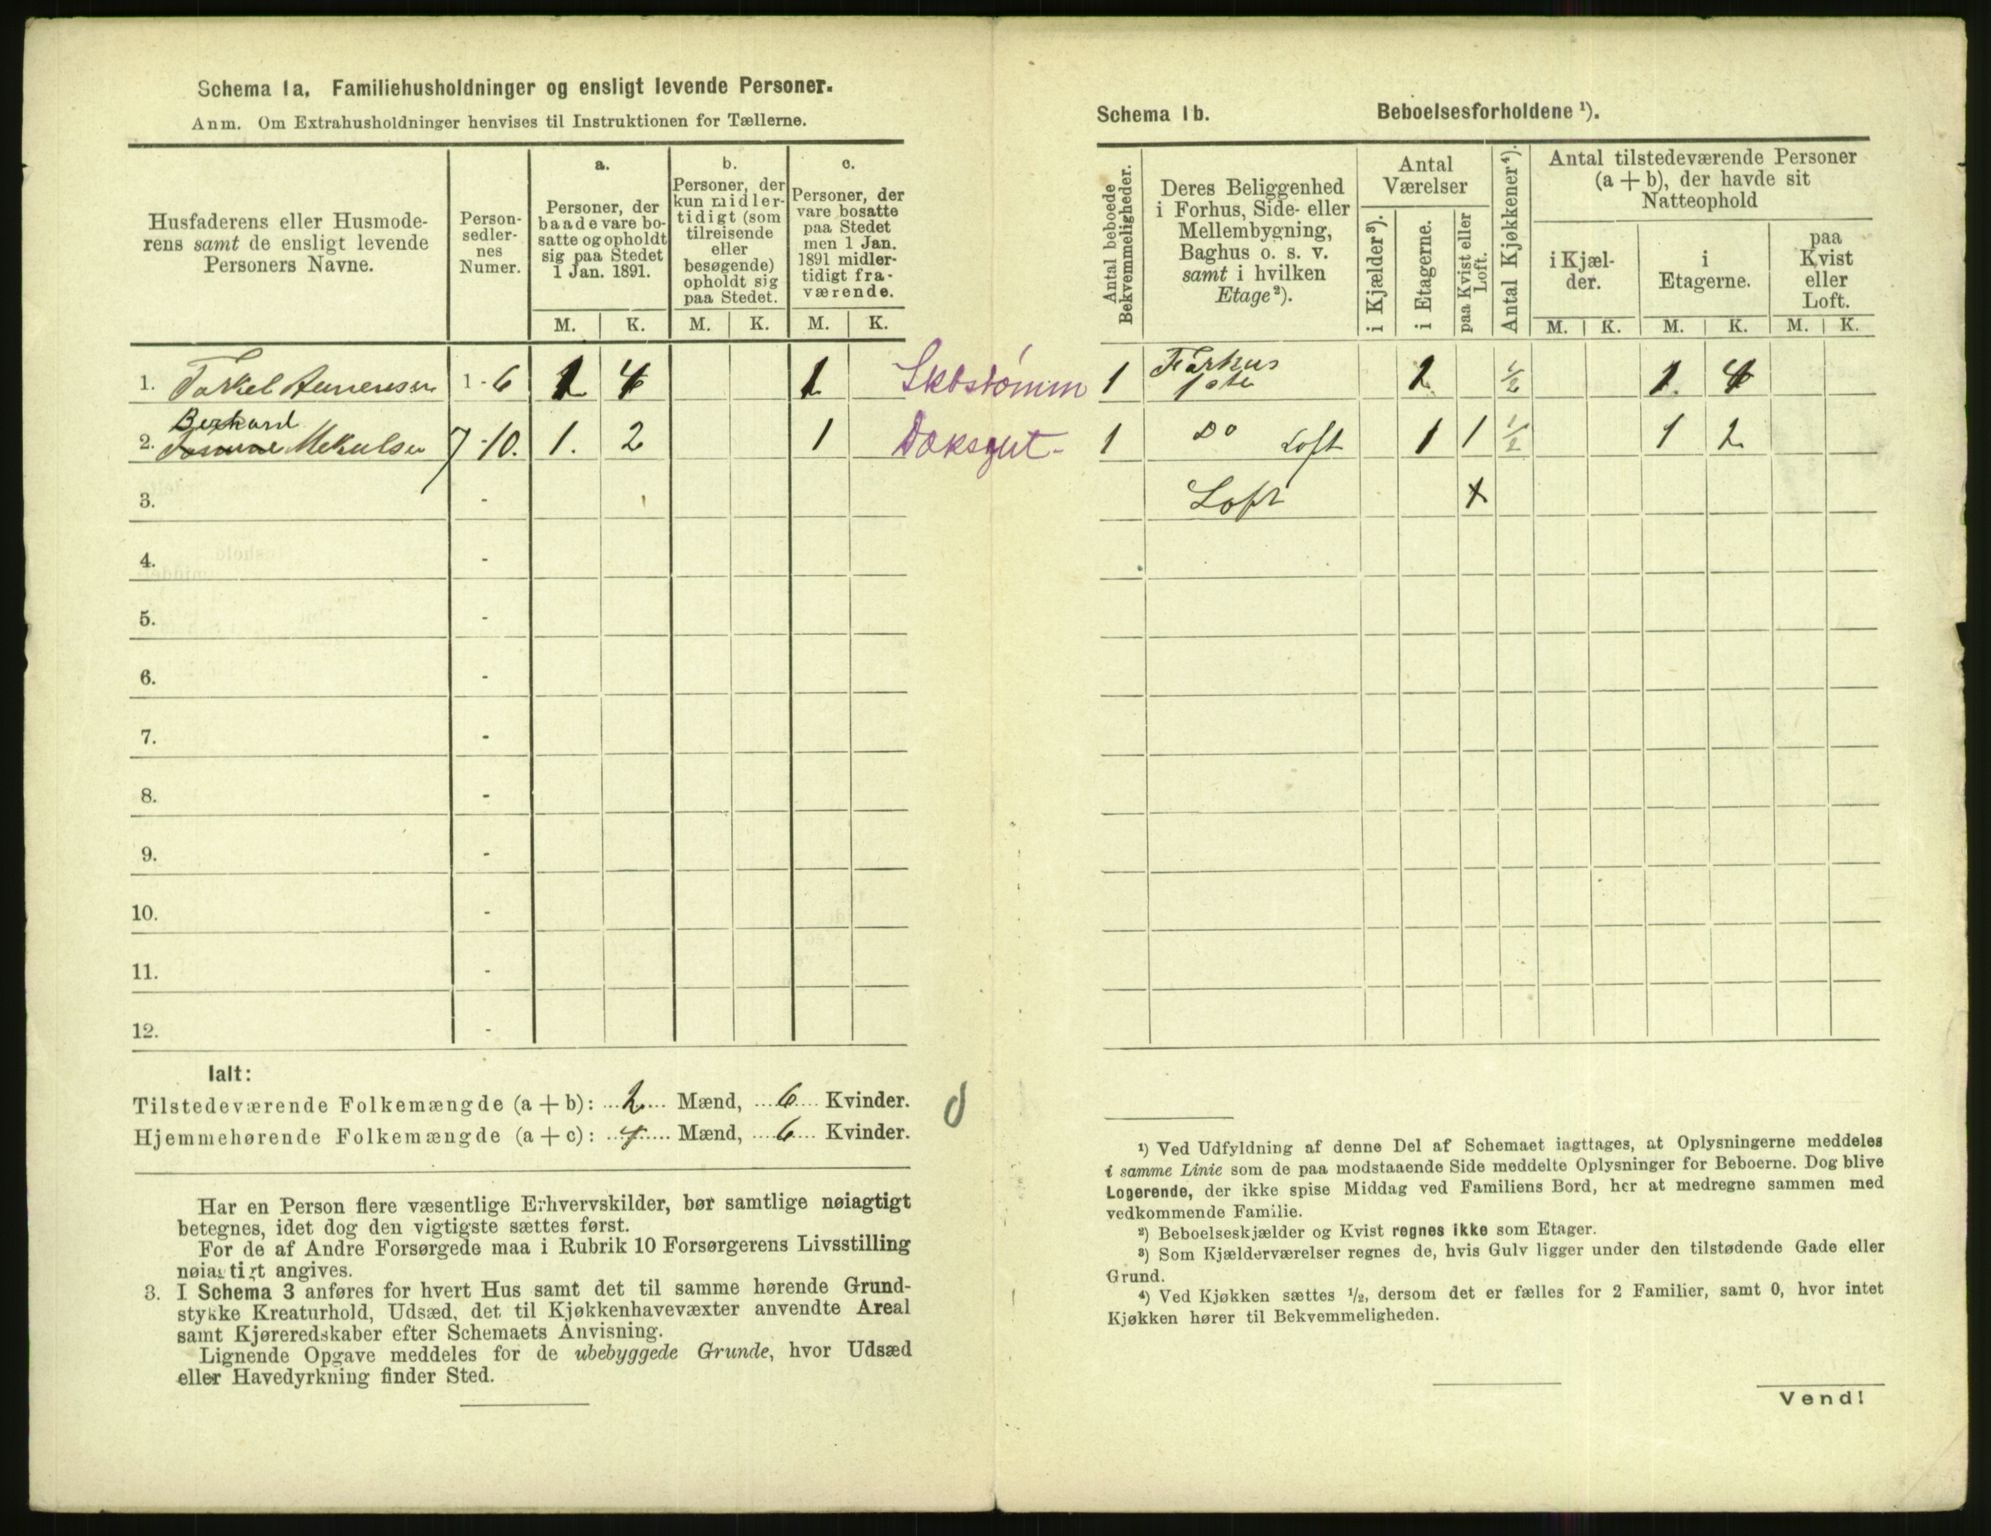 Schema 1a. Familiehusholdninger og ensligt levende Personer.
Anm. Om Extrahusholdninger henvises til Instruktionen for Tællerne.
Husfaderens eller Husmode-
rens samt de ensligt levende
Personers Navne.
Person-
sedler-
nes
Numer.
a.
Personer, der
baade vare bo-
satte og opholdt
sig paa Stedet
1 Jan. 1891.
b.
Personer, der
kun midler-
tidigt (som
tilreisende
eller
besøgende)
opholdt sig
paa Stedet.
c.
Personer, der
vare bosatte
paa Stedet
men 1 Jan.
1891 midler-
tidigt fra-
værende.
M. K. M. K. M. K.
1. Torkel 1 - 6 1 4 1
Berhard
2. Mekulsen 7 - 10. 1. 2 1
3. -
4. -
5. -
6. -
7. -
8. -
9. -
10. -
11. -
12. -
Ialt:
Tilstedeværende Folkemængde (a + b): 2 Mænd, 6 Kvinder.
Hjemmehørende Folkemængde (a + c): 4 Mænd, 6 Kvinder.
Har en Person flere væsentlige Erhvervskilder, bør samtlige nøiagtigt
betegnes, idet dog den vigtigste sættes først.
For de af Andre Forsørgede maa i Rubrik 10 Forsørgerens Livsstilling
nøiagtigt angives.
3. I Schema 3 anføres for hvert Hus samt det til samme hørende Grund-
stykke Kreaturhold, Udsæd, det til Kjøkkenhavevæxter anvendte Areal
samt Kjøreredskaber efter Schemaets Anvisning.
Lignende Opgave meddeles for de ubebyggede Grunde, hvor Udsæd
eller Havedyrkning finder Sted.
Schema 1b. Beboelsesforholdene ¹).
Antal beboede
Bekvemmeligheder.
Deres Beliggenhed
i Forhus, Side- eller
Mellembygning,
Baghus o. s. v.
samt i hvilken
Etage²).
Antal
Værelser
i Kjælder³).
i Etagerne.
paa Kvist eller
Loft.
Antal Kjøkkener⁴).
Antal tilstedeværende Personer
(a + b), der havde sit
Natteophold
i Kjæl-
der.
i
Etagerne.
paa
Kvist
eller
Loft.
M. K. M. K. M. K.
1 Forhus 1 ½ 1 4
Daksgut 1 Do Loft 1 1 ½ 1 2
Loft x
¹) Ved Udfyldning af denne Del af Schemaet iagttages, at Oplysningerne meddeles
i samme Linie som de paa modstaaende Side meddelte Oplysninger for Beboerne. Dog blive
Logerende, der ikke spise Middag ved Familiens Bord, her at medregne sammen med
vedkommende Familie.
²) Beboelseskjælder og Kvist regnes ikke som Etager.
³) Som Kjælderværelser regnes de, hvis Gulv ligger under den tilstødende Gade eller
Grund.
⁴) Ved Kjøkken sættes ½, dersom det er fælles for 2 Familier, samt 0, hvor intet
Kjøkken hører til Bekvemmeligheden.
Vend!